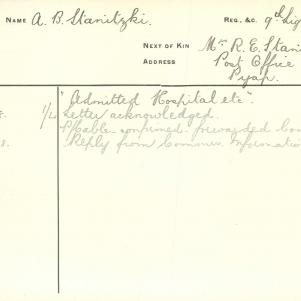 NAME A. B. Stanitzki. REG., &C. 9th Lig
NEXT OF KIN Mr R. E. Stani
ADDRESS Post Office
Pyap.
"Admitted Hospital etc"
1/2 Letter acknowledged.
P/Cable confirmed. forwarded
8. Reply from Commns. Information